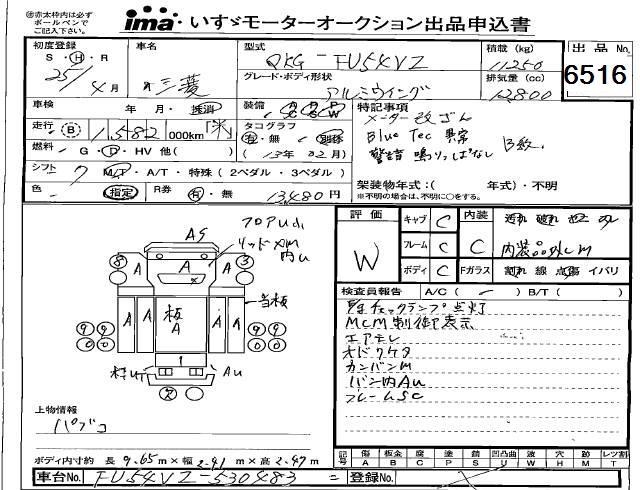 ㊟赤太枠内は必ず
ボールペンで
ご記入下さい
ima・いすゞモーターオークション出品申込書
初度登録 車名 型式 積載(kg) 出品No.
S・H・R 25/4月 三菱 QKG-FU54VZ 11250 6516
グレード・ボディ形状 排気量(cc)
アルミウイング 12800
車検 年 月・抹消 装備 AC PS PW 特記事項
メーター改ざん
走行 B 1,582 000km 米 タコグラフ Blue Tec 異常
有・無 (13年02月) 警告音 鳴りっぱなし B級.
燃料 G・D・HV 他( )
シフト 7 MT・A/T・特殊(2ペダル・3ペダル) 架装物年式:( 年式)・不明
※不明の場合は、不明に○をする。
色 指定 R券 有・無 13480円
評価 キャブ C 内装 汚れ 破れ
W フレーム C C 内装品外しM
ボディ C Fガラス 割れ 線 点傷 イバリ
フロアUd
リッドメM
内U
AS
当板
板
A
1
AU
検査員報告 A/C( - ) B/T( )
チェックランプ点灯
MCM制御表示
エアモレ
オドクケタ
カンバンM
バン内AU
フレームSC
上物情報
パブコ
ボディ内寸約 長 9.65m×幅 2.41m×高 2.47m
記号 傷 A 板金 B 腐 C 塗 P 錆 S 凹凸曲 U 波 W 穴 H 跡 M レツ割 T
車台No. FU54VZ-530483 = 登録No.